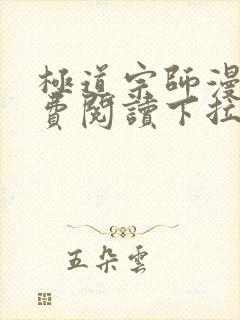 極道宗師漫
費閱讀下拉
五朵雲